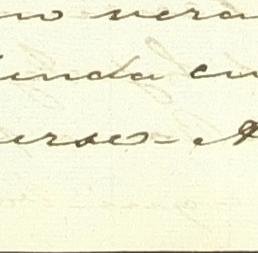 no vera
ienda en
erse - A